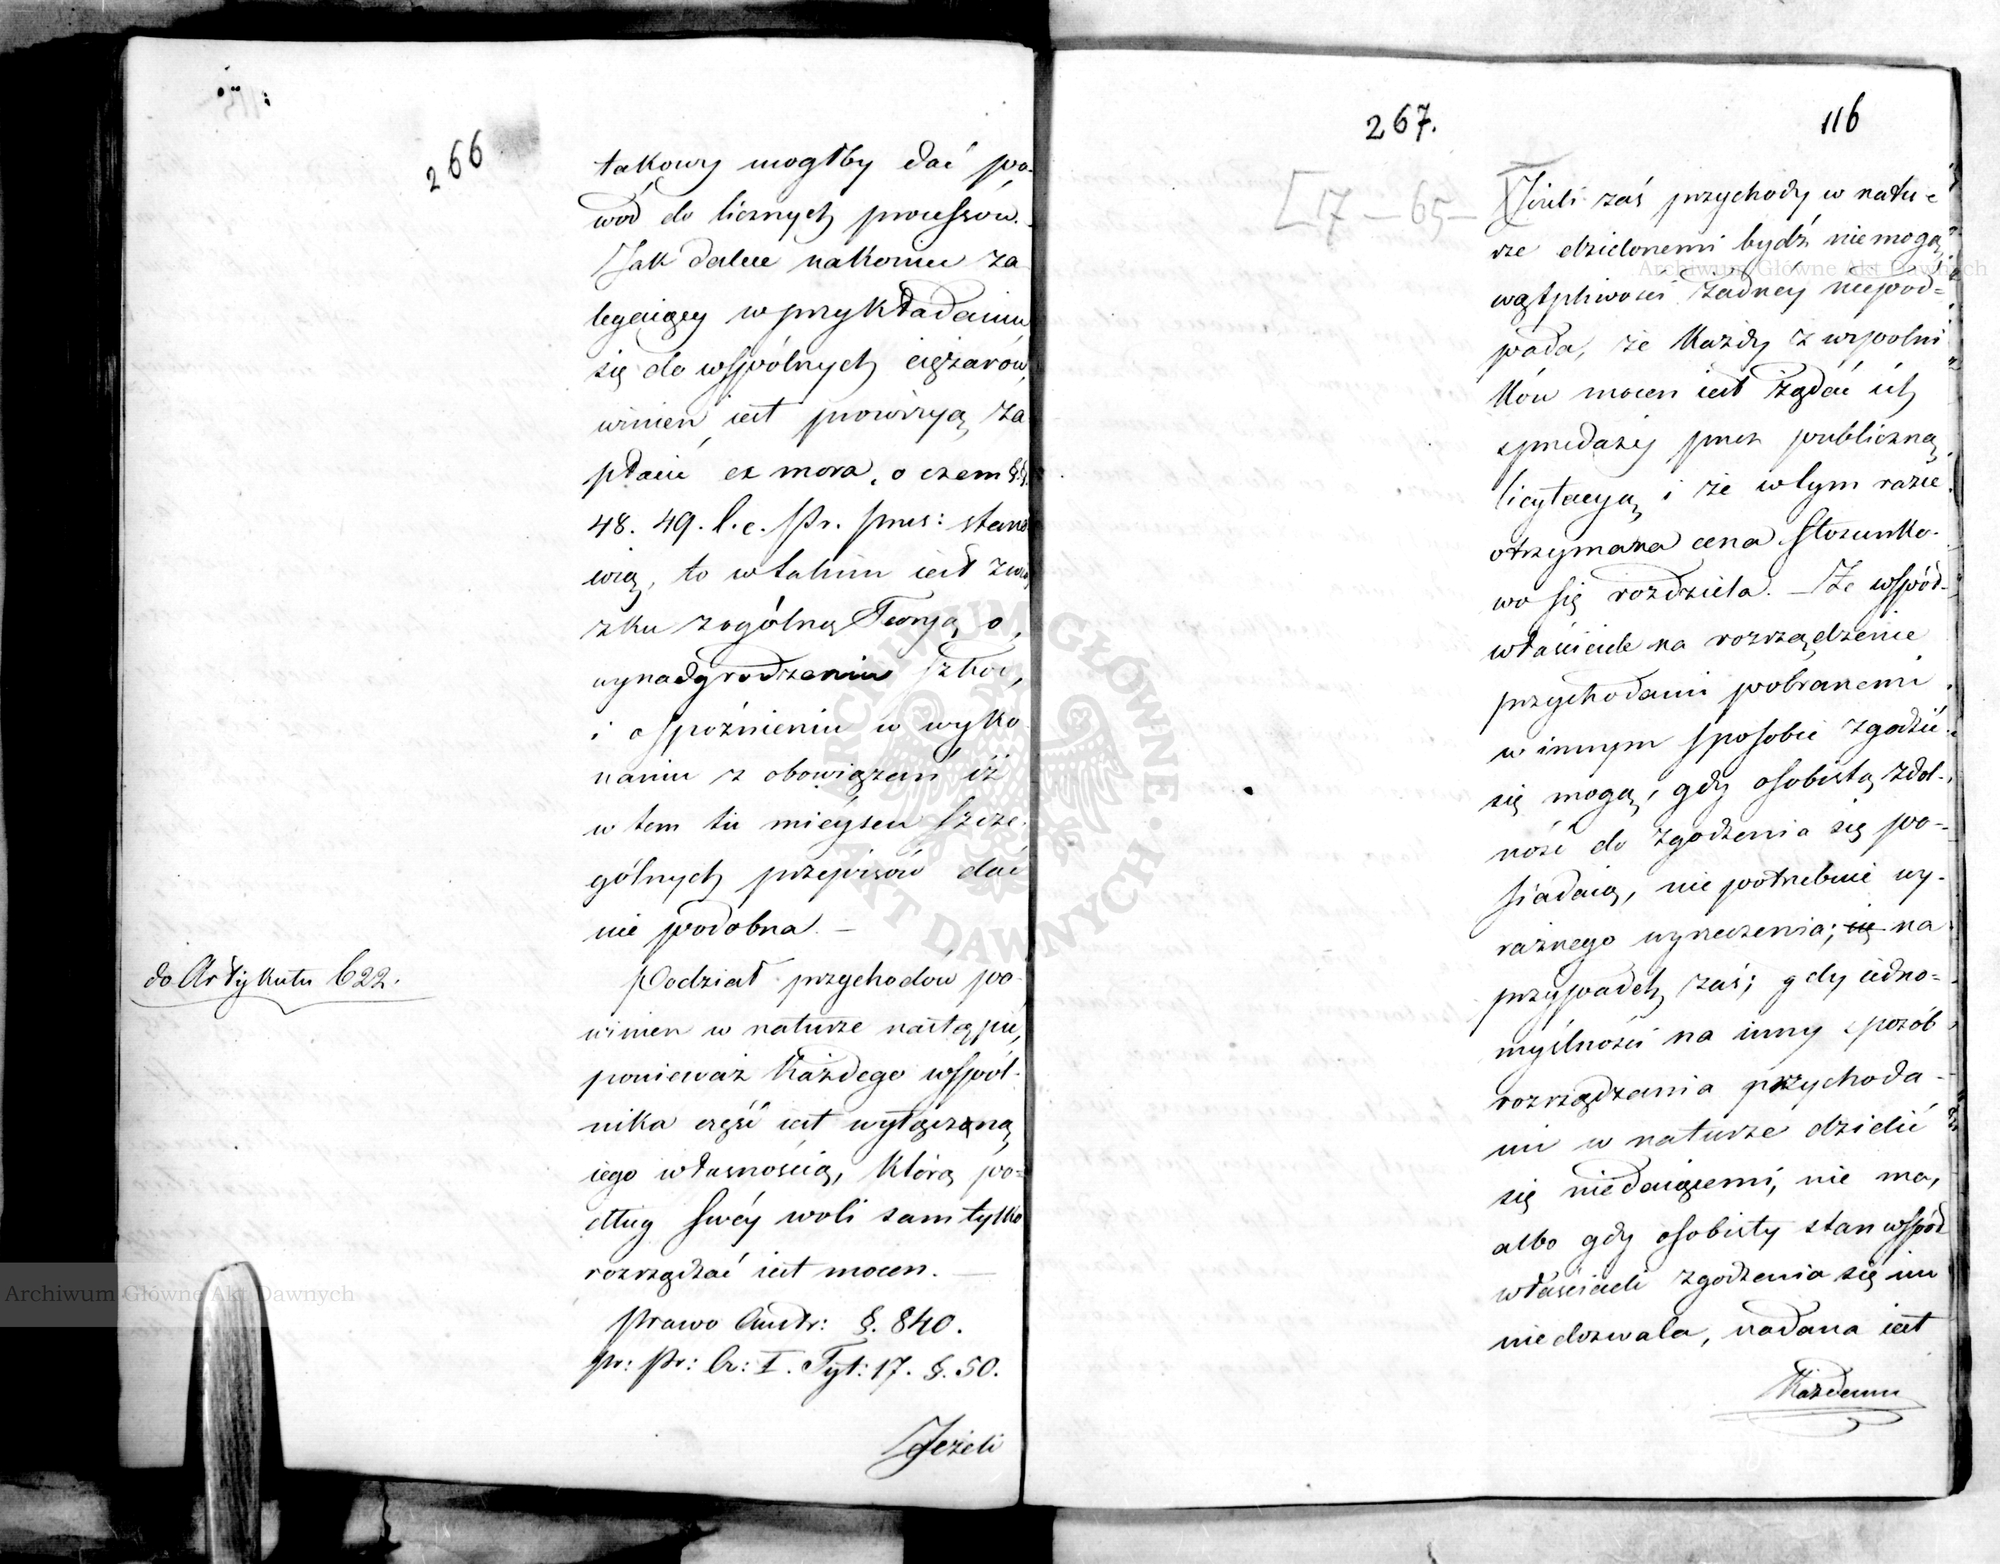 266
takowy mogłby dać po-
wód do licznych processów.
Jak dalece nakoniec za
legaiący w przykładaniu
się do wspólnych ciężarów,
winien iest prowizyą za
płacić ex mora, o czem §.§.
48. 49. l. c. Pr. prus: stano
wią, to w takim iest zwią
zku z ogólną Teoryą o
wynadgrodzeniu szkod,
i o spóźnieniu w wyko
naniu z obowiązań iż
w tem tu mieyscu szcze
gólnych przepisów dać
nie podobna. —
do Artykułu 622.
Podział przychodów po
winien w naturze nastąpić,
ponieważ każdego wspól-
nika część iest wyłączną
iego własnością, którą po=
dług swéy woli sam tylko
rozrządzać iest mocen. —
Prawo Austr: §. 840.
pr: Pr: Cz: I. Tyt: 17. §. 50.
Jeżeli
267.
116
[17 — 65 —
Jeżeli zaś przychody w natu=
rze dzielonemi bydź niemogą,
wątpliwości żadney niepod=
pada, że każdy z wspolni
ków mocen iest żądać ich
sprzedaży przez publiczną
licytacyą i że w tym razie
otrzymana cena stosunko-
wo się rozdziela. — Że współ-
właściciele na rozrządzenie
przychodami pobranemi
w innym sposobie zgodzić
się mogą, gdy osobistą zdol-
ność do zgodzenia się po-
siadaią, nie potrzebuie wy-
raźnego wyrzeczenia; na
przypadek zaś; gdy iedno=
myślności na inny sposób
rozrządzania przychoda-
mi w naturze dzielić
się niedaiącemi, nie ma,
albo gdy osobisty stan współ
właścicieli zgodzenia się im
niedozwala, nadana iest
Każdemu
Archiwum Główne Akt Dawnych
Archiwum Główne Akt Dawnych
ARCHIWUM GŁÓWNE AKT DAWNYCH